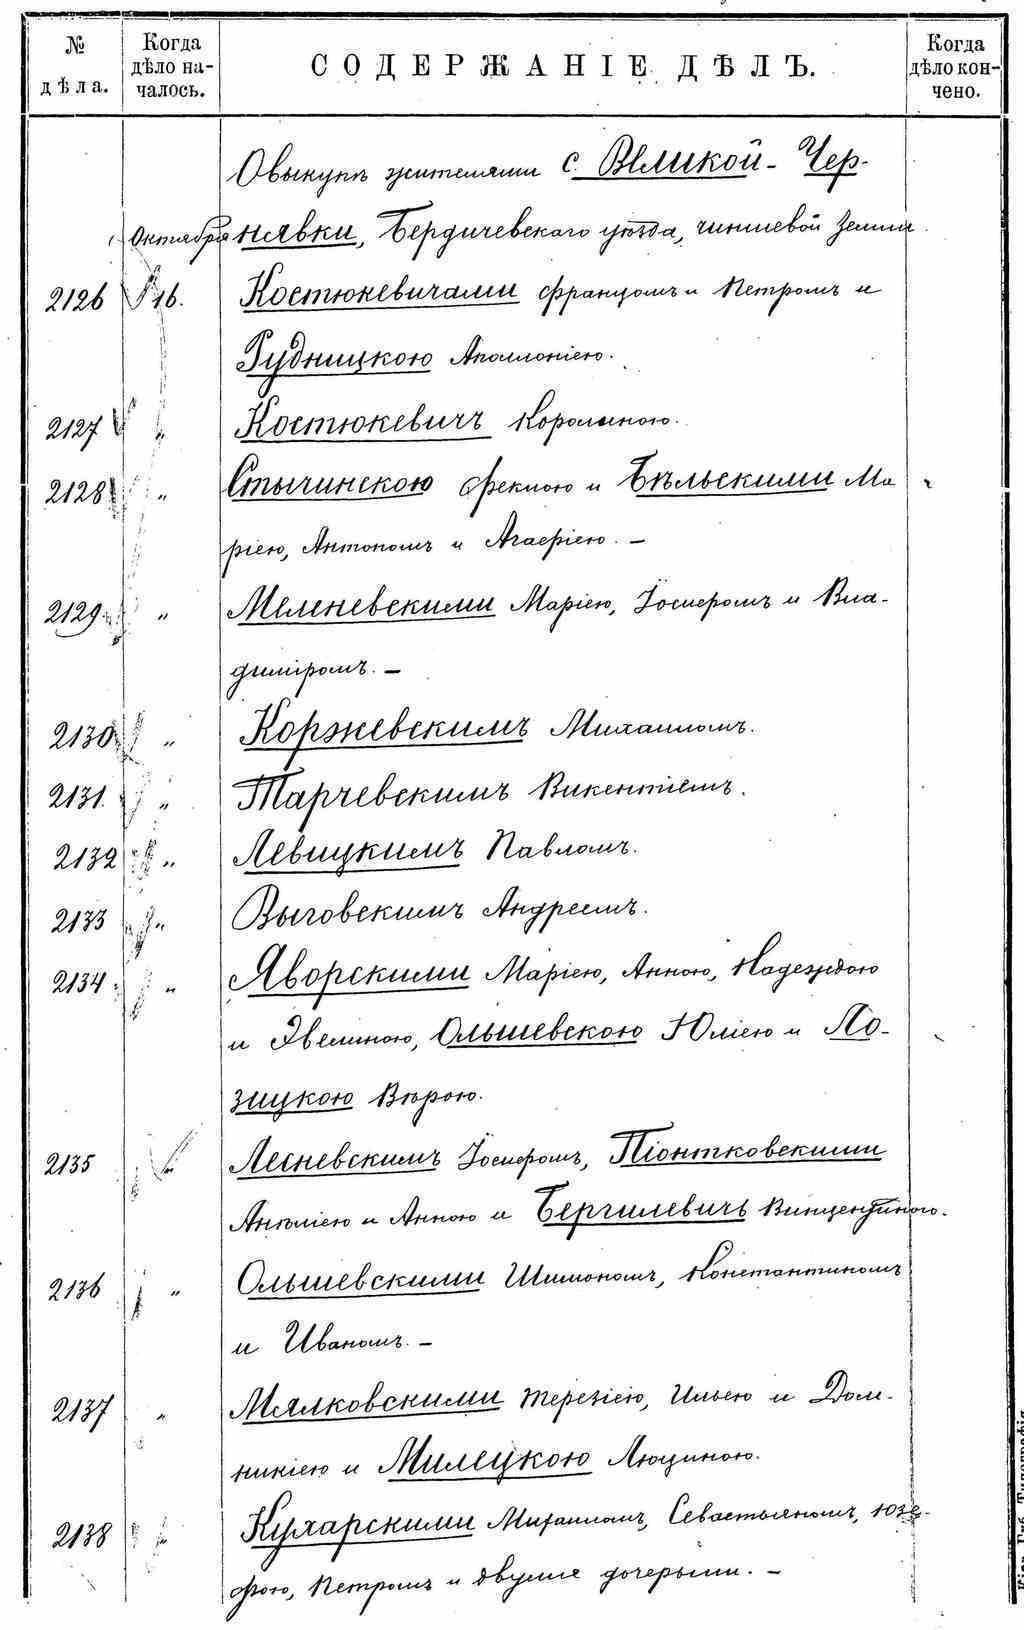 № дѣла.
Когда дѣло на-
чалось.
СОДЕРЖАНІЕ ДѢЛЪ.
Когда дѣло кон-
чено.
О выкупѣ жителями с. Великой-Чер-
Октября нявки, Бердичевскаго уѣзда, чиншевой земли
2126 16. Костюкевичами Францомъ и Петромъ и
Рудницкою Аполлоніею.
2127 " Костюкевичъ Каролиною.
2128 " Стычинскою Феклою и Бѣльскими Ма
ріею, Антономъ и Агафіею. —
2129 " Меленевскими Маріею, Іосифомъ и Вла-
диміромъ. —
2130 " Коржевскимъ Михаиломъ.
2131. " Тарчевскимъ Викентіемъ.
2132 " Левицкимъ Павломъ.
2133 " Выговскимъ Андреемъ.
2134 " Яворскими Маріею, Анною, Надеждою
и Эвелиною, Ольшевскою Юліею и Ло-
зицкою Вѣрою.
2135 " Лесневскимъ Іосифомъ, Піонтковскими
Анѣліею и Анною и Бергилевичъ Винцентиною.
2136 " Ольшевскими Шимономъ, Константиномъ
и Иваномъ. —
2137 " Мялковскими Терезіею, Ильею и Дом-
никіею и Милецкою Люциною.
2138 " Кухарскими Михаиломъ, Севастьяномъ, Юзе-
фою, Петромъ и двумя дочерьми. —